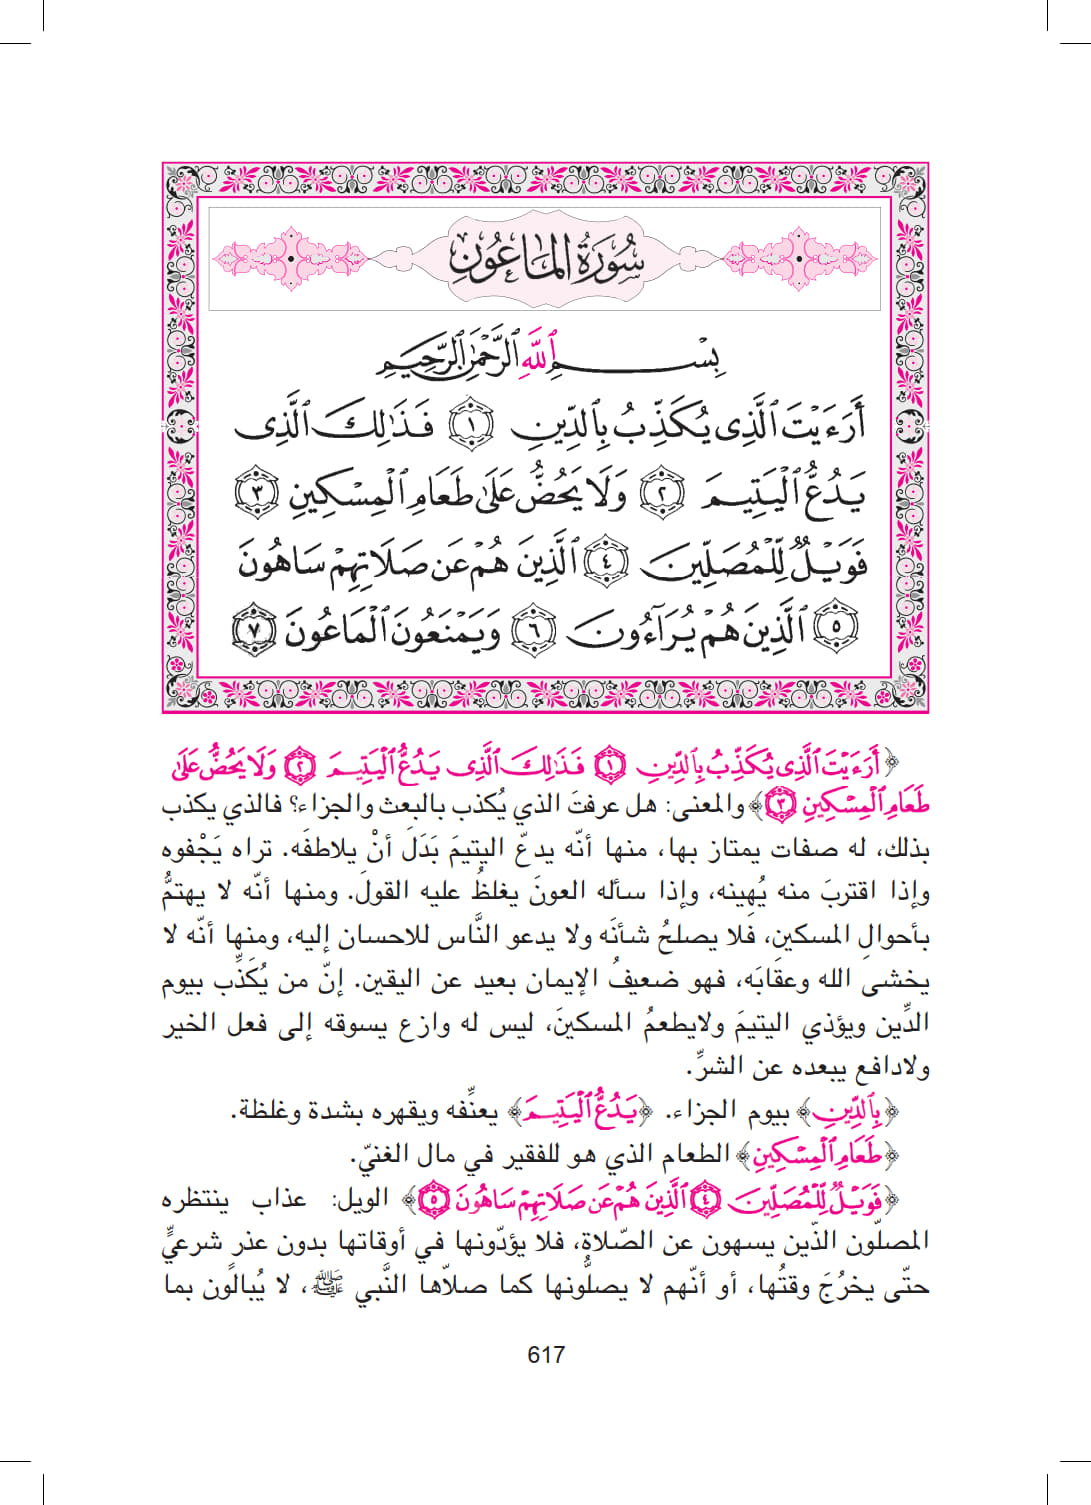 سُورَةُ المَاعُون
بِسْمِ ٱللَّهِ ٱلرَّحْمَٰنِ ٱلرَّحِيمِ
أَرَءَيْتَ ٱلَّذِى يُكَذِّبُ بِٱلدِّينِ ١ فَذَٰلِكَ ٱلَّذِى
يَدُعُّ ٱلْيَتِيمَ ٢ وَلَا يَحُضُّ عَلَىٰ طَعَامِ ٱلْمِسْكِينِ ٣
فَوَيْلٌ لِّلْمُصَلِّينَ ٤ ٱلَّذِينَ هُمْ عَن صَلَاتِهِمْ سَاهُونَ
٥ ٱلَّذِينَ هُمْ يُرَآءُونَ ٦ وَيَمْنَعُونَ ٱلْمَاعُونَ ٧
﴿أَرَءَيْتَ ٱلَّذِى يُكَذِّبُ بِٱلدِّينِ ١ فَذَٰلِكَ ٱلَّذِى يَدُعُّ ٱلْيَتِيمَ ٢ وَلَا يَحُضُّ عَلَىٰ
طَعَامِ ٱلْمِسْكِينِ ٣﴾ والمعنى: هل عرفتَ الذي يُكذب بالبعث والجزاء؟ فالذي يكذب
بذلك، له صفات يمتاز بها، منها أنّه يدعّ اليتيمَ بَدَلَ أنْ يلاطفَه. تراه يَجْفوه
وإذا اقتربَ منه يُهينه، وإذا سأله العونَ يغلظُ عليه القولَ. ومنها أنّه لا يهتمُّ
بأحوالِ المسكينِ، فلا يصلحُ شأنَه ولا يدعو النَّاس للاحسان إليه، ومنها أنّه لا
يخشى الله وعقابَه، فهو ضعيفُ الإيمان بعيد عن اليقين. إنّ من يُكَذِّب بيوم
الدِّين ويؤذي اليتيمَ ولايطعمُ المسكينَ، ليس له وازع يسوقه إلى فعل الخير
ولادافع يبعده عن الشرِّ.
﴿بِٱلدِّينِ﴾ بيوم الجزاء. ﴿يَدُعُّ ٱلْيَتِيمَ﴾ يعنِّفه ويقهره بشدة وغلظة.
﴿طَعَامِ ٱلْمِسْكِينِ﴾ الطعام الذي هو للفقير في مال الغنيّ.
﴿فَوَيْلٌ لِّلْمُصَلِّينَ ٤ ٱلَّذِينَ هُمْ عَن صَلَاتِهِمْ سَاهُونَ ٥﴾ الويل: عذاب ينتظره
المصلّون الذّين يسهون عن الصّلاةِ، فلا يؤدّونها في أوقاتها بدون عذرٍ شرعيٍّ
حتّى يخرُجَ وقتُها، أو أنّهم لا يصلُّونها كما صلاّها النَّبي ﷺ، لا يُبالُون بما
617